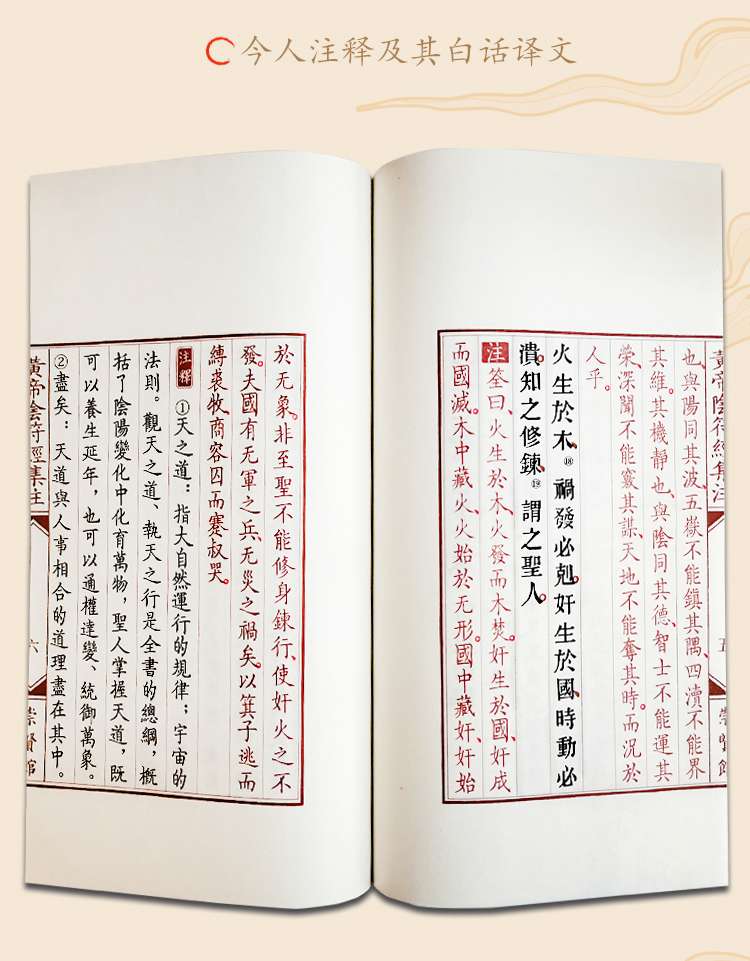 今人注释及其白话译文
黃帝陰符經集注
五
崇賢館
也、與陽同其波、五嶽不能鎮其隅、四瀆不能界
其維。其機靜也、與陰同其德、智士不能運其
榮、深聞不能竅其謀、天地不能奪其時。而況於
人乎。
火生於木⑱、禍發必剋。奸生於國、時動必
潰。知之修鍊⑲、謂之聖人。
注 筌曰、火生於木、火發而木焚。奸生於國、奸成
而國滅。木中藏火、火始於无形。國中藏奸、奸始
於无象。非至聖不能修身鍊行、使奸火之不
發。夫國有无軍之兵、无災之禍矣。以箕子逃而
縛裘牧、商容囚而蹇叔哭。
注釋 ①天之道：指大自然運行的規律；宇宙的
法則。觀天之道、執天之行是全書的總綱，概
括了陰陽變化中化育萬物，聖人掌握天道，既
可以養生延年，也可以通權達變、統御萬象。
②盡矣：天道與人事相合的道理盡在其中。
黃帝陰符經集注
六
崇賢館